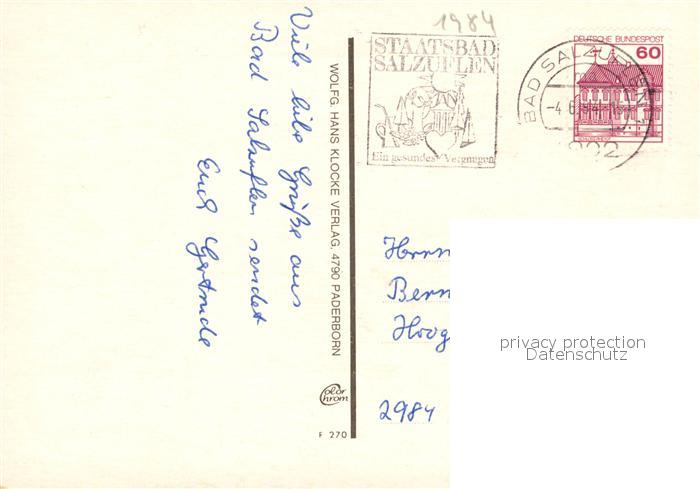 1984
STAATSBAD
SALZUFLEN
Ein gesundes Vergnügen
BAD SALZUFLEN
-4.6.84
DEUTSCHE BUNDESPOST
60
Viele liebe Grüße aus
Bad Salzuflen sendet
Euch Gertrude
WOLFG. HANS KLOCKE VERLAG, 4790 PADERBORN
Color
Chrom
F 270
Herrn
Bern
Hoog
2984
privacy protection
Datenschutz